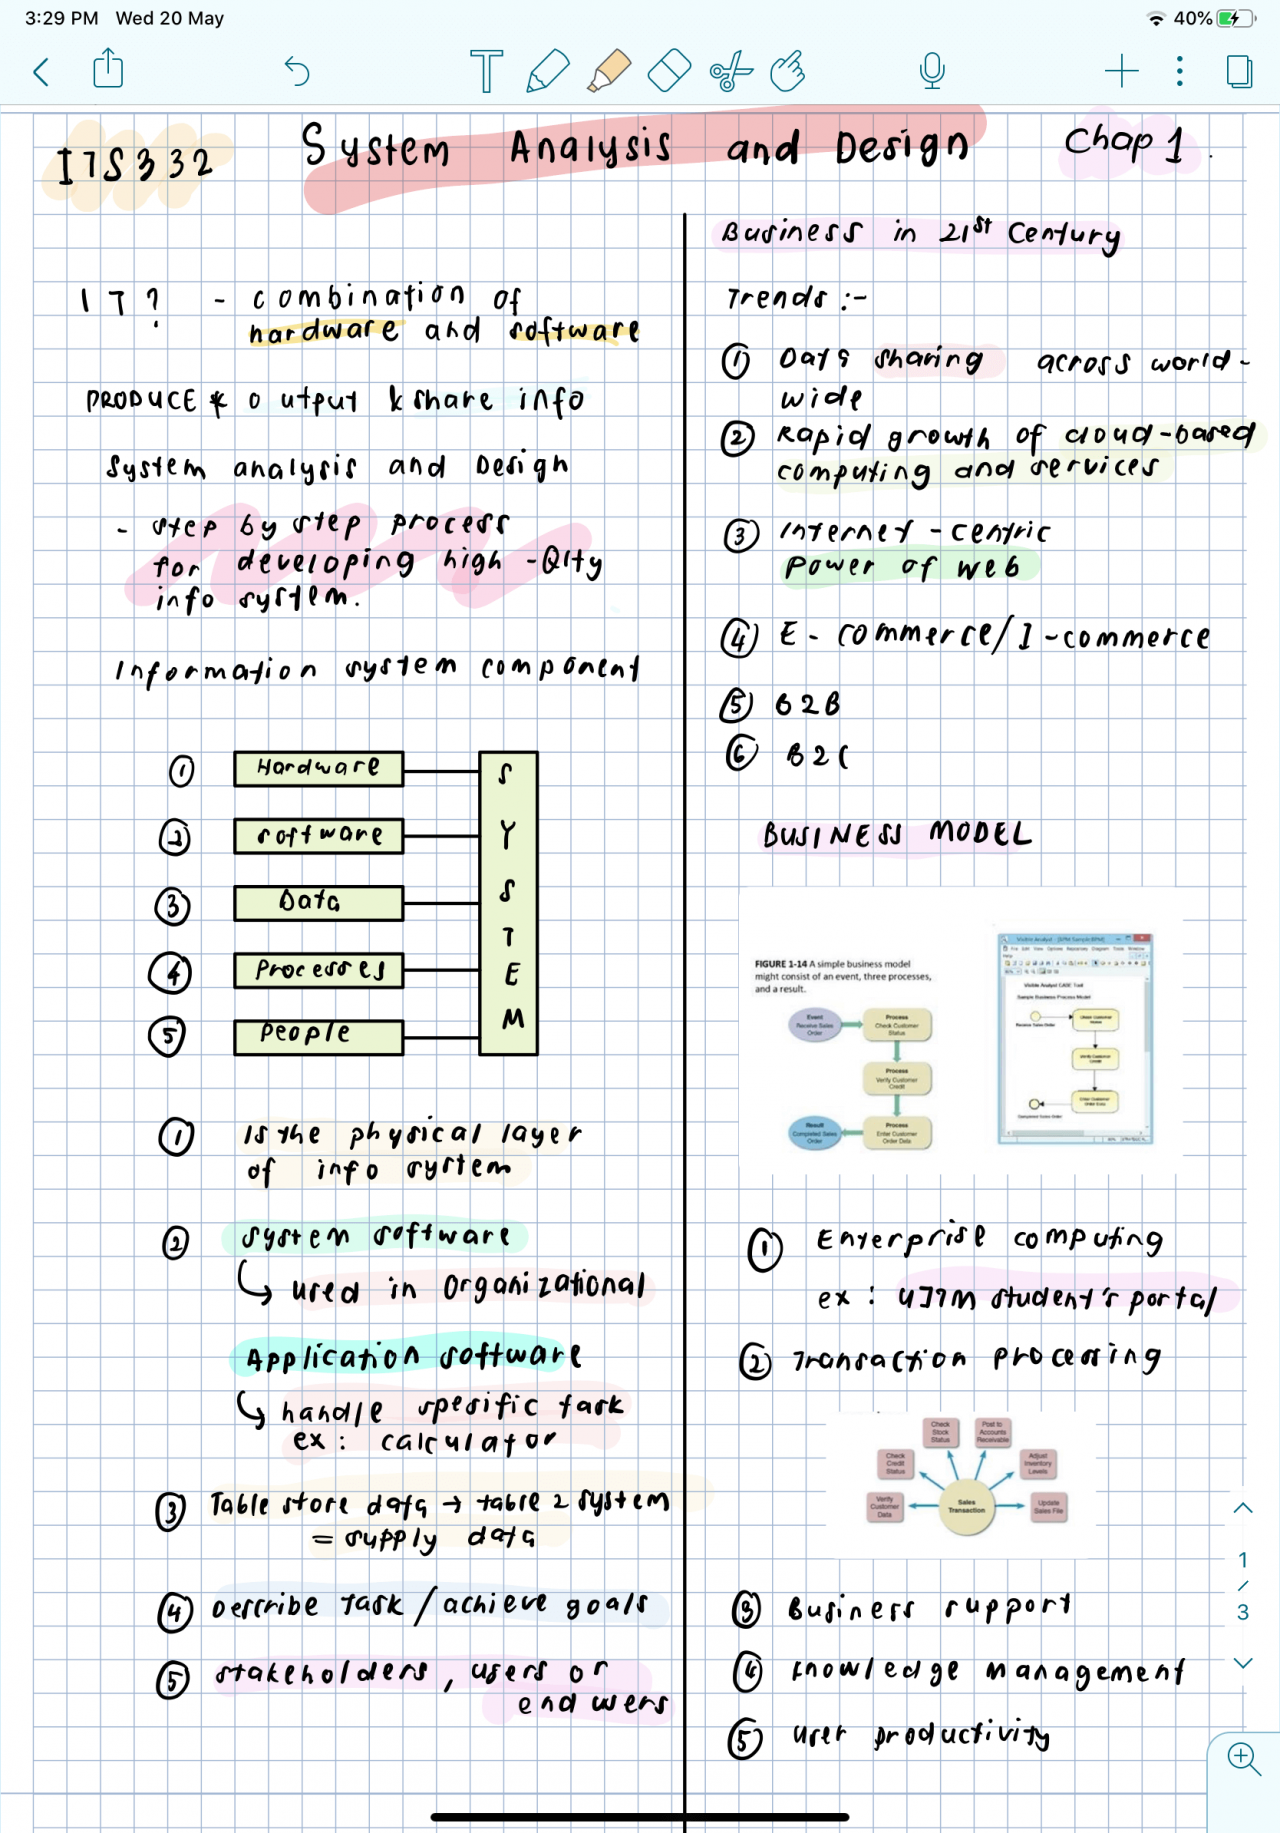 3:29 PM Wed 20 May
40%
ITS332
System Analysis and Design
Chap 1.
IT? - combination of
hardware and software
PRODUCE * output & share info
System analysis and Design
- step by step process
for developing high-Qlty
info system.
Information system component
① Hardware
② software
③ Data
④ Processes
⑤ People
SYSTEM
① Is the physical layer
of info system
② System software
↳ used in organizational
Application software
↳ handle spesific task
ex: calculator
③ Table store data → table 2 system
= supply data
④ Describe task / achieve goals
⑤ stakeholders, users or
end users
Business in 21st Century
Trends :-
① Data sharing across world-
wide
② Rapid growth of cloud-based
computing and services
③ Internet - centric
Power of web
④ E-commerce/I-commerce
⑤ B2B
⑥ B2C
BUSINESS MODEL
FIGURE 1-14 A simple business model
might consist of an event, three processes,
and a result.
Event
Receive Sales
Order
Process
Check Customer
Status
Process
Verify Customer
Credit
Process
Enter Customer
Order Data
Result
Completed Sales
Order
Visible Analyst CASE Tool
Sample Business Process Model
① Enterprise computing
ex: UITM student's portal
② Transaction processing
Check
Stock
Status
Post to
Accounts
Receivable
Check
Credit
Status
Adjust
Inventory
Levels
Verify
Customer
Data
Sales
Transaction
Update
Sales File
③ Business support
④ knowledge management
⑤ user productivity
1
/
3